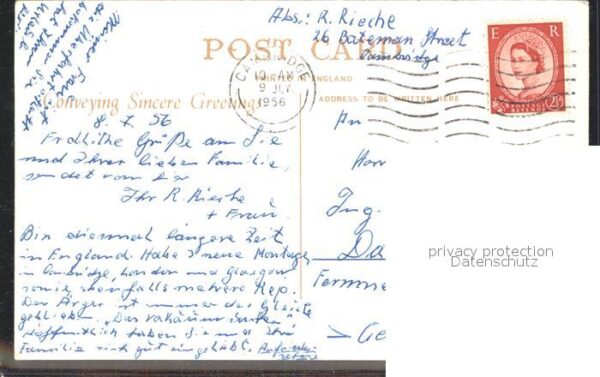 Abs.: R. Riecke
26 Bateman Street
Cambridge
POST CARD
CAMBRIDGE
10 AM
9 JLY
1956
E R
POSTAGE REVENUE
2½D
ENGLAND
ADDRESS TO BE WRITTEN HERE
Conveying Sincere Greetings
8.7.56
Fröhliche Grüße an Sie
und Ihrer lieben Familie,
sendet von hier
Ihr R. Riecke
+ Frau.
Bin diesmal längere Zeit
in England. Habe 3 neue Montagen
in Cambridge, London und Glasgow
sowie ebenfalls mehrere Rep.
Der Ärger ist immer das Gleiche
geblieben. "Das
hoffentlich haben Sie und Ihre
Familie sich gut eingelebt.
Meiner Frau
die Überfahrt
bekommen. Sie
hat
An
Herr
Ing.
Da
Ferme
> Ge
privacy protection
Datenschutz